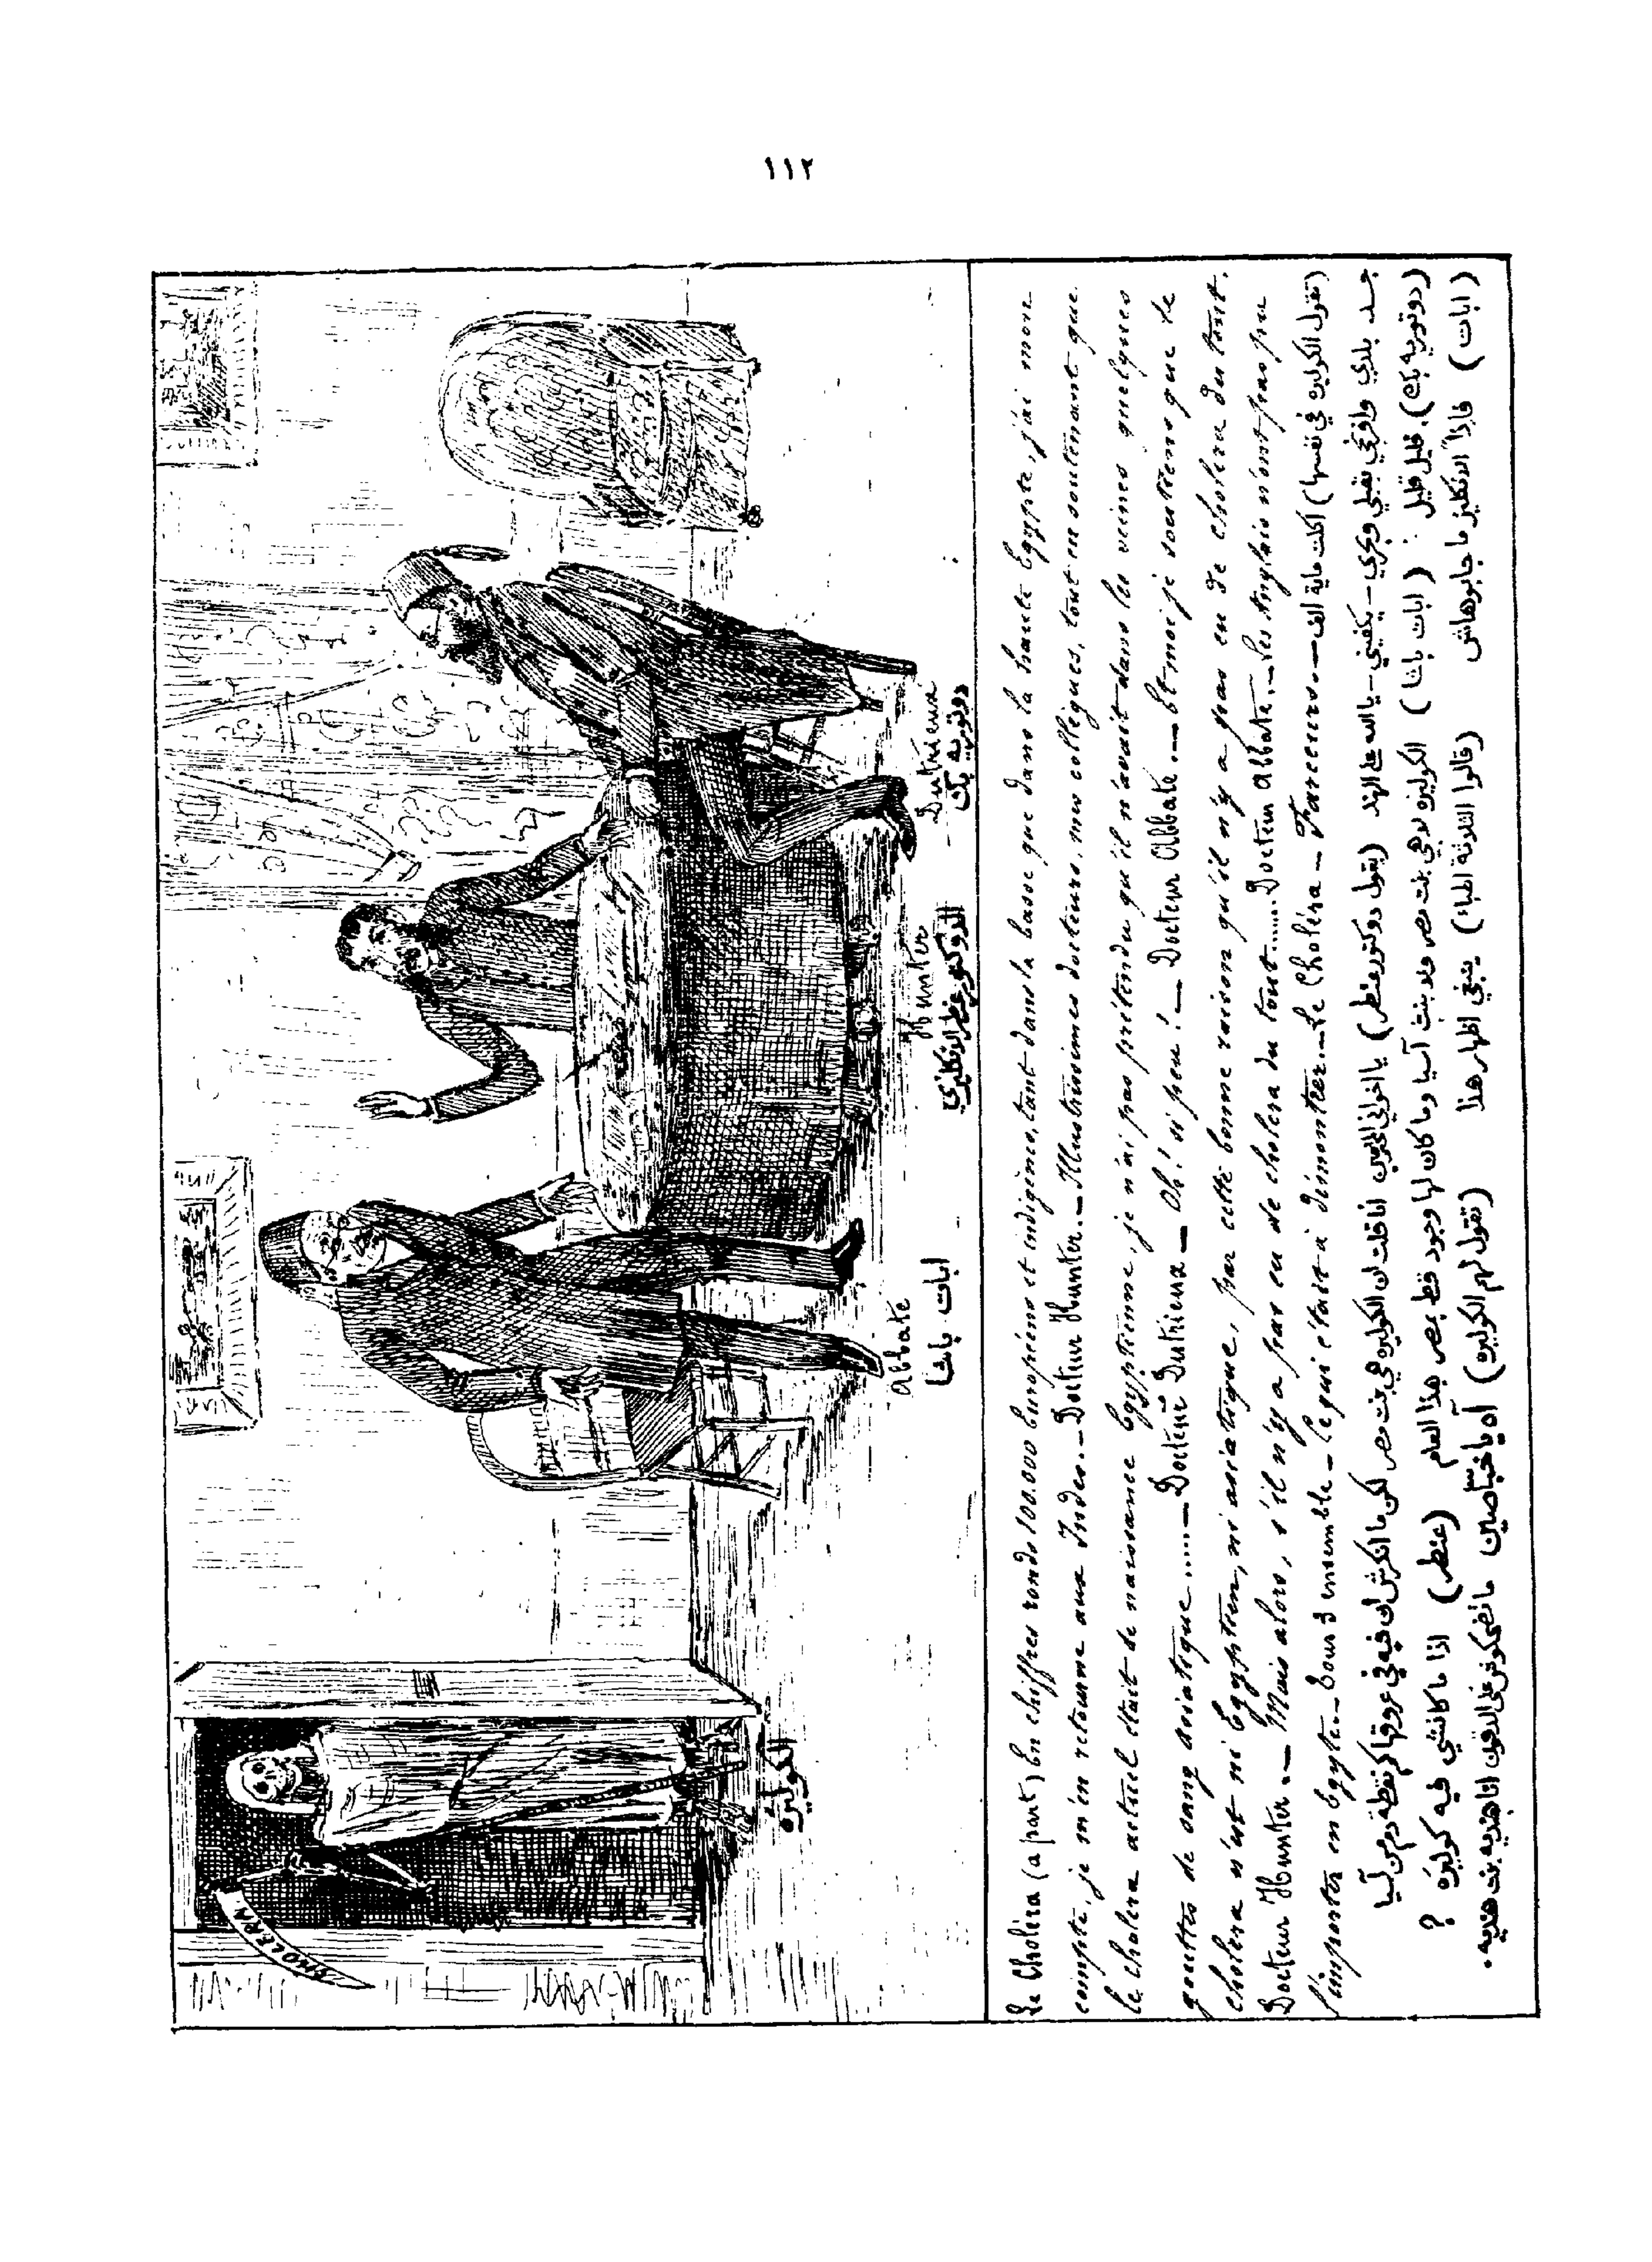 ١١٢
CHOLERA
الكوليره
Abbate
ابات باشا
Hunter
الدوكتور عنطر الانكليزي
Dutrieux
دوتريه بك
Le Choléra (a part) En chiffres ronds 100.000 Européens et indigènes, tant dans la basse que dans la haute Egypte, j'ai mon
compte, je m'en retourne aux Indes._ Docteur Hunter._ Illustrissimes docteurs, mes collègues, tout en soutenant que
le choléra actuel était de naissance Egyptienne, je n'ai pas prétendu qu'il n'avait dans les veines quelques
gouttes de sang asiatique ......_ Docteur Dutrieux _ Oh! si peu! _ Docteur Abbate._ Et moi je soutiens que le
choléra n'est ni Egyptien, ni asiatique, par cette bonne raison qu'il n'y a pas eu de choléra du tout.
Docteur Hunter._ Mais alors, s'il n'y a pas eu de choléra du tout...... Docteur Abbate._ Les Anglais n'ont pas pu
l'importer en Egypte._ Tous 3 ensemble _ Ce qui était à démontrer._ Le Choléra _ Farceurs._
(تقول الكوليره في نفسها) اكلت ماية الف
جدد بلدي وافرنجي قبلي وبحري – يكفيني – يا الله على الهند (يقول دوكتور عنطر) يا اخواني انا قلت ان الكوليره هي بنت مصر لكن ما انكرش ان فيه في عروقها كم نقطة دم من آسيا
(دوتريه بك) قليل قليل . (ابات باشا) الكوليره لا هي بنت مصر ولا بنت آسيا وما كان لها وجود قط بمصر هذا العام (عنطر) اذا ما كانشي فيه كوليره ?
(ابات) فاذاً الانكليز ما جابوهاش (قالوا الثلاثة اطباء) ينبغي اظهار هذا (تقول لهم الكوليره) آه يا خباصين ما تضحكوش على الدقون انا هنديه بنت هنديه.